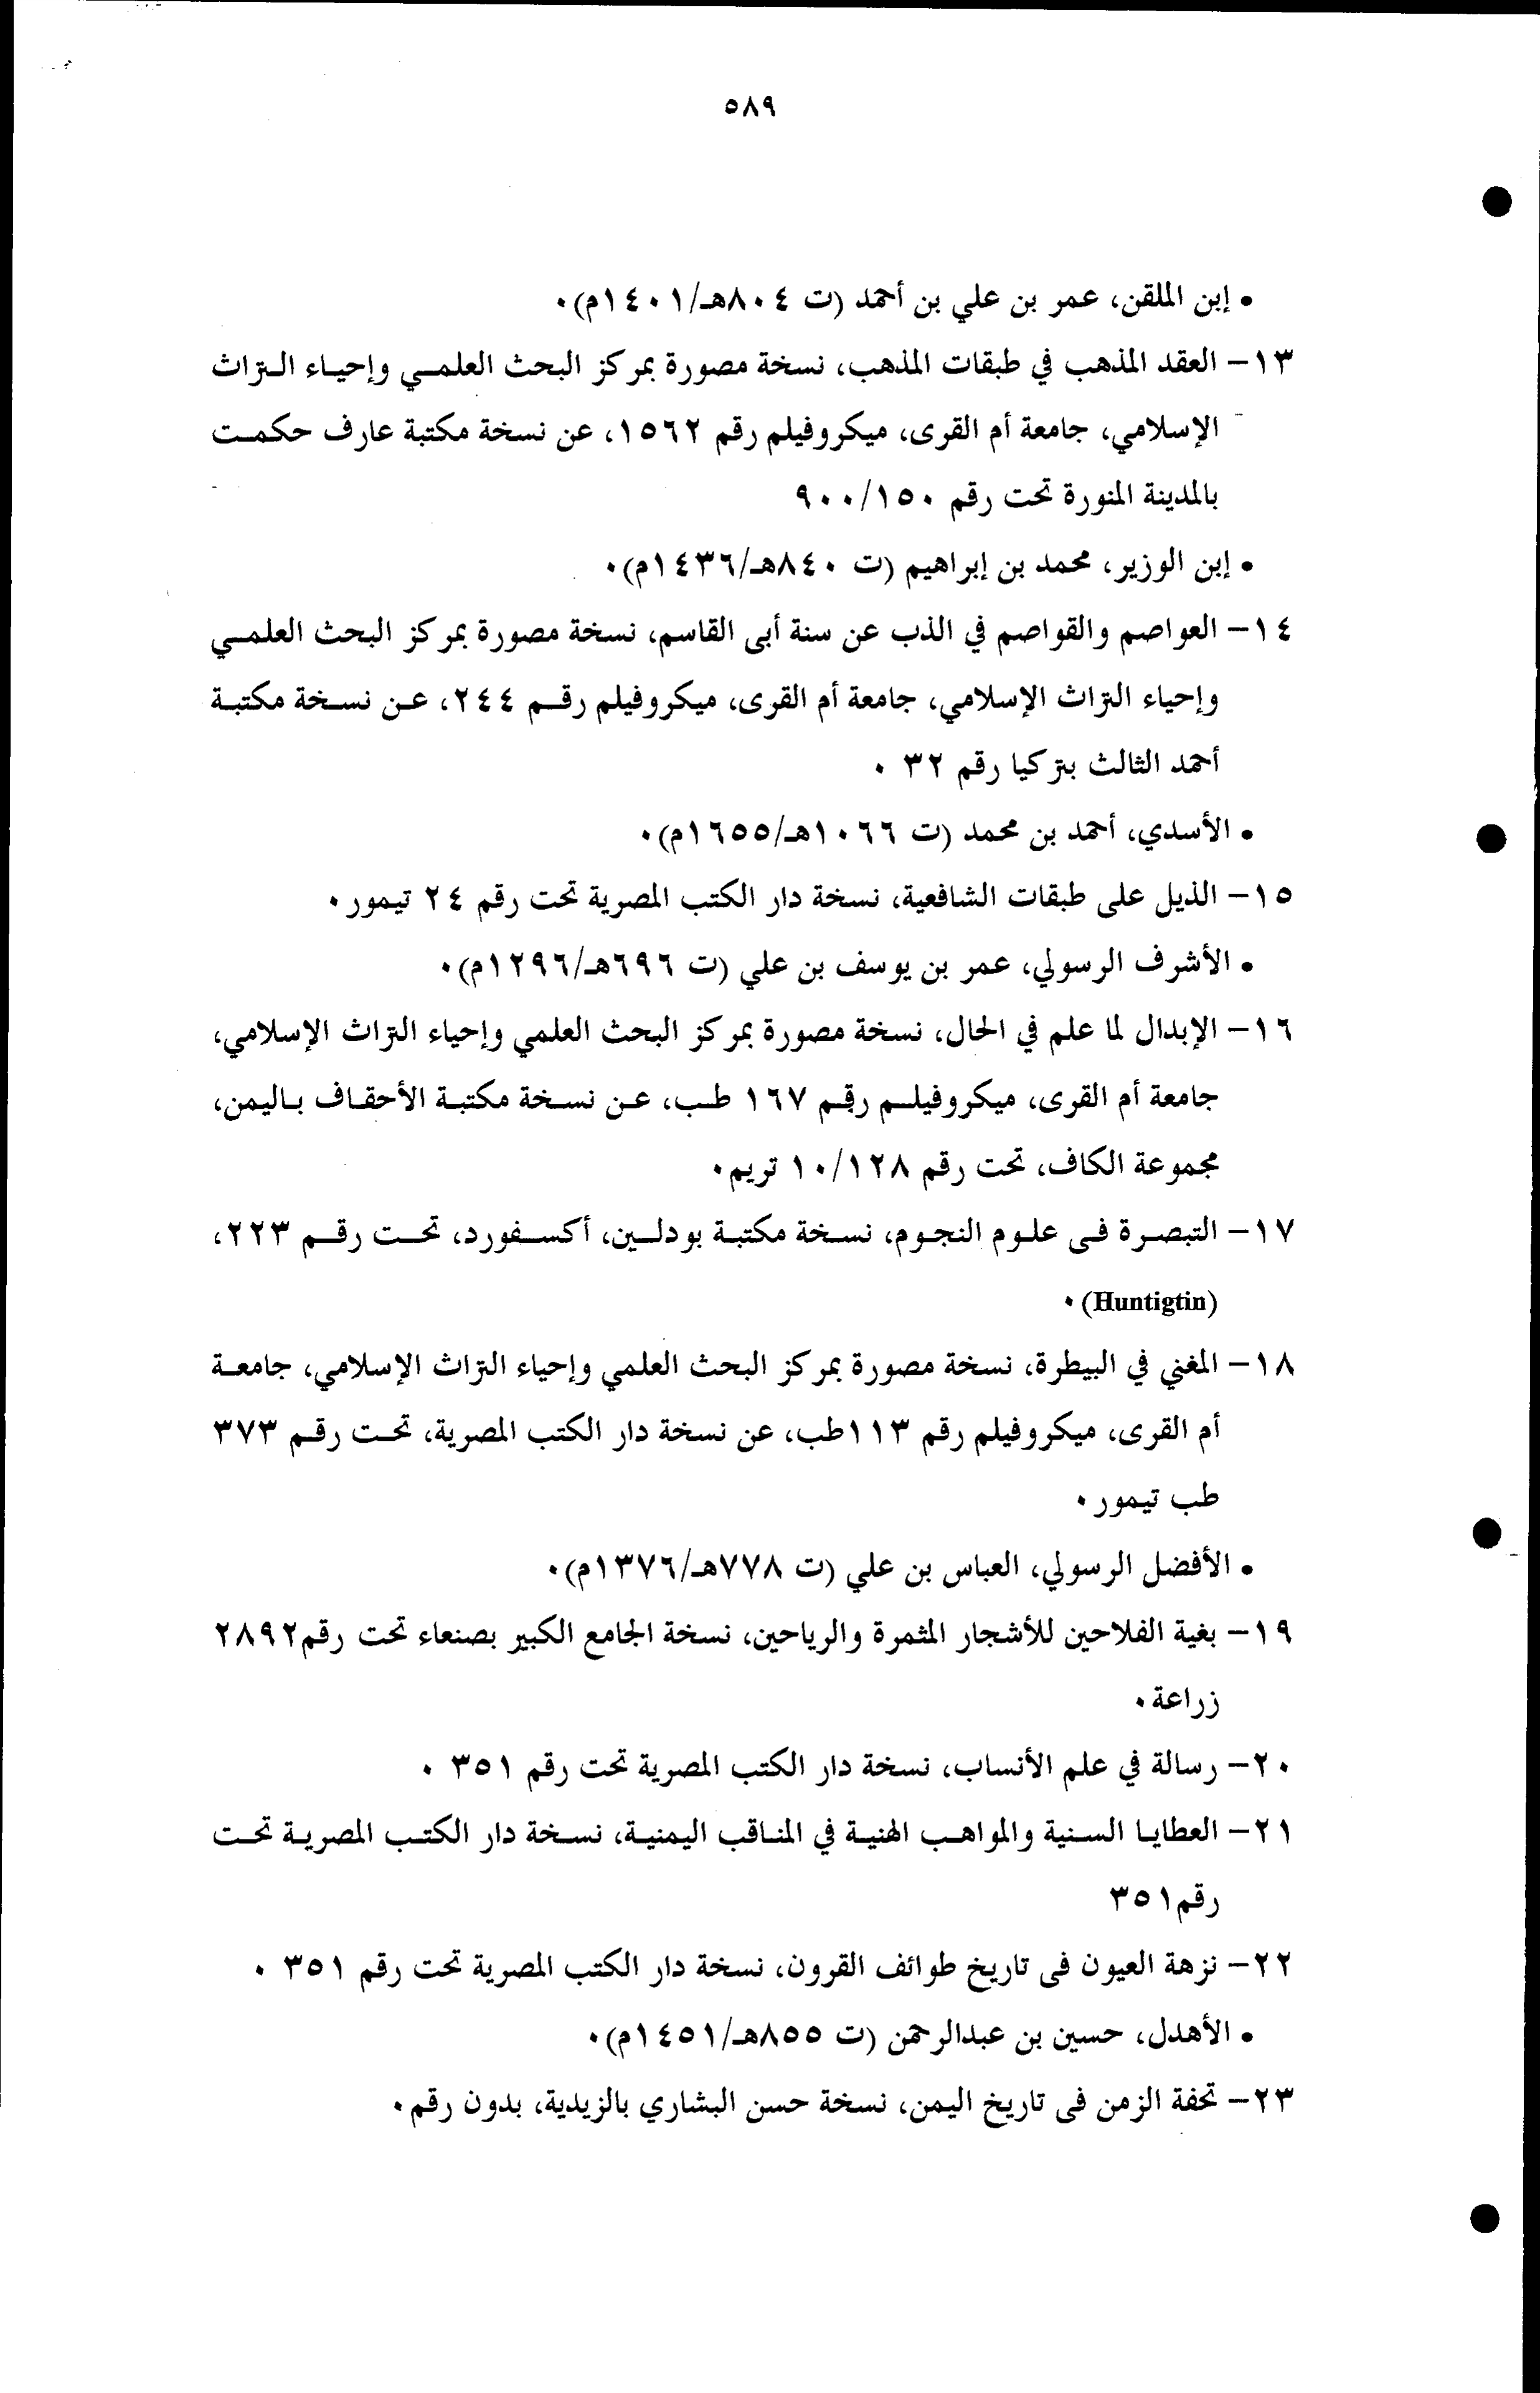 ٥٨٩
• إبن الملقن، عمر بن علي بن أحمد (ت ٨٠٤هـ/١٤٠١م)٠
١٣- العقد المذهب في طبقات المذهب، نسخة مصورة بمركز البحث العلمي وإحياء التراث
الإسلامي، جامعة أم القرى، ميكروفيلم رقم ١٥٦٢، عن نسخة مكتبة عارف حكمت
بالمدينة المنورة تحت رقم ٩٠٠/١٥٠
• إبن الوزير، محمد بن إبراهيم (ت ٨٤٠هـ/١٤٣٦م)٠
١٤- العواصم والقواصم في الذب عن سنة أبى القاسم، نسخة مصورة بمركز البحث العلمي
وإحياء التراث الإسلامي، جامعة أم القرى، ميكروفيلم رقم ٢٤٤، عن نسخة مكتبة
أحمد الثالث بتركيا رقم ٣٢ ٠
• الأسدي، أحمد بن محمد (ت ١٠٦٦هـ/١٦٥٥م)٠
١٥- الذيل على طبقات الشافعية، نسخة دار الكتب المصرية تحت رقم ٢٤ تيمور٠
• الأشرف الرسولي، عمر بن يوسف بن علي (ت ٦٩٦هـ/١٢٩٦م)٠
١٦- الإبدال لما علم في الحال، نسخة مصورة بمركز البحث العلمي وإحياء التراث الإسلامي،
جامعة أم القرى، ميكروفيلم رقم ١٦٧ طب، عن نسخة مكتبة الأحقاف باليمن،
مجموعة الكاف، تحت رقم ١٠/١٢٨ تريم٠
١٧- التبصرة فى علوم النجوم، نسخة مكتبة بودلين، أكسفورد، تحت رقم ٢٢٣،
(Huntigtin) ٠
١٨- المغني في البيطرة، نسخة مصورة بمركز البحث العلمي وإحياء التراث الإسلامي، جامعة
أم القرى، ميكروفيلم رقم ١١٣طب، عن نسخة دار الكتب المصرية، تحت رقم ٣٧٣
طب تيمور٠
• الأفضل الرسولي، العباس بن علي (ت ٧٧٨هـ/١٣٧٦م)٠
١٩- بغية الفلاحين للأشجار المثمرة والرياحين، نسخة الجامع الكبير بصنعاء تحت رقم٢٨٩٢
زراعة٠
٢٠- رسالة في علم الأنساب، نسخة دار الكتب المصرية تحت رقم ٣٥١ ٠
٢١- العطايا السنية والمواهب الهنية في المناقب اليمنية، نسخة دار الكتب المصرية تحت
رقم٣٥١
٢٢- نزهة العيون فى تاريخ طوائف القرون، نسخة دار الكتب المصرية تحت رقم ٣٥١ ٠
• الأهدل، حسين بن عبدالرحمن (ت ٨٥٥هـ/١٤٥١م)٠
٢٣- تحفة الزمن فى تاريخ اليمن، نسخة حسن البشاري بالزيدية، بدون رقم٠